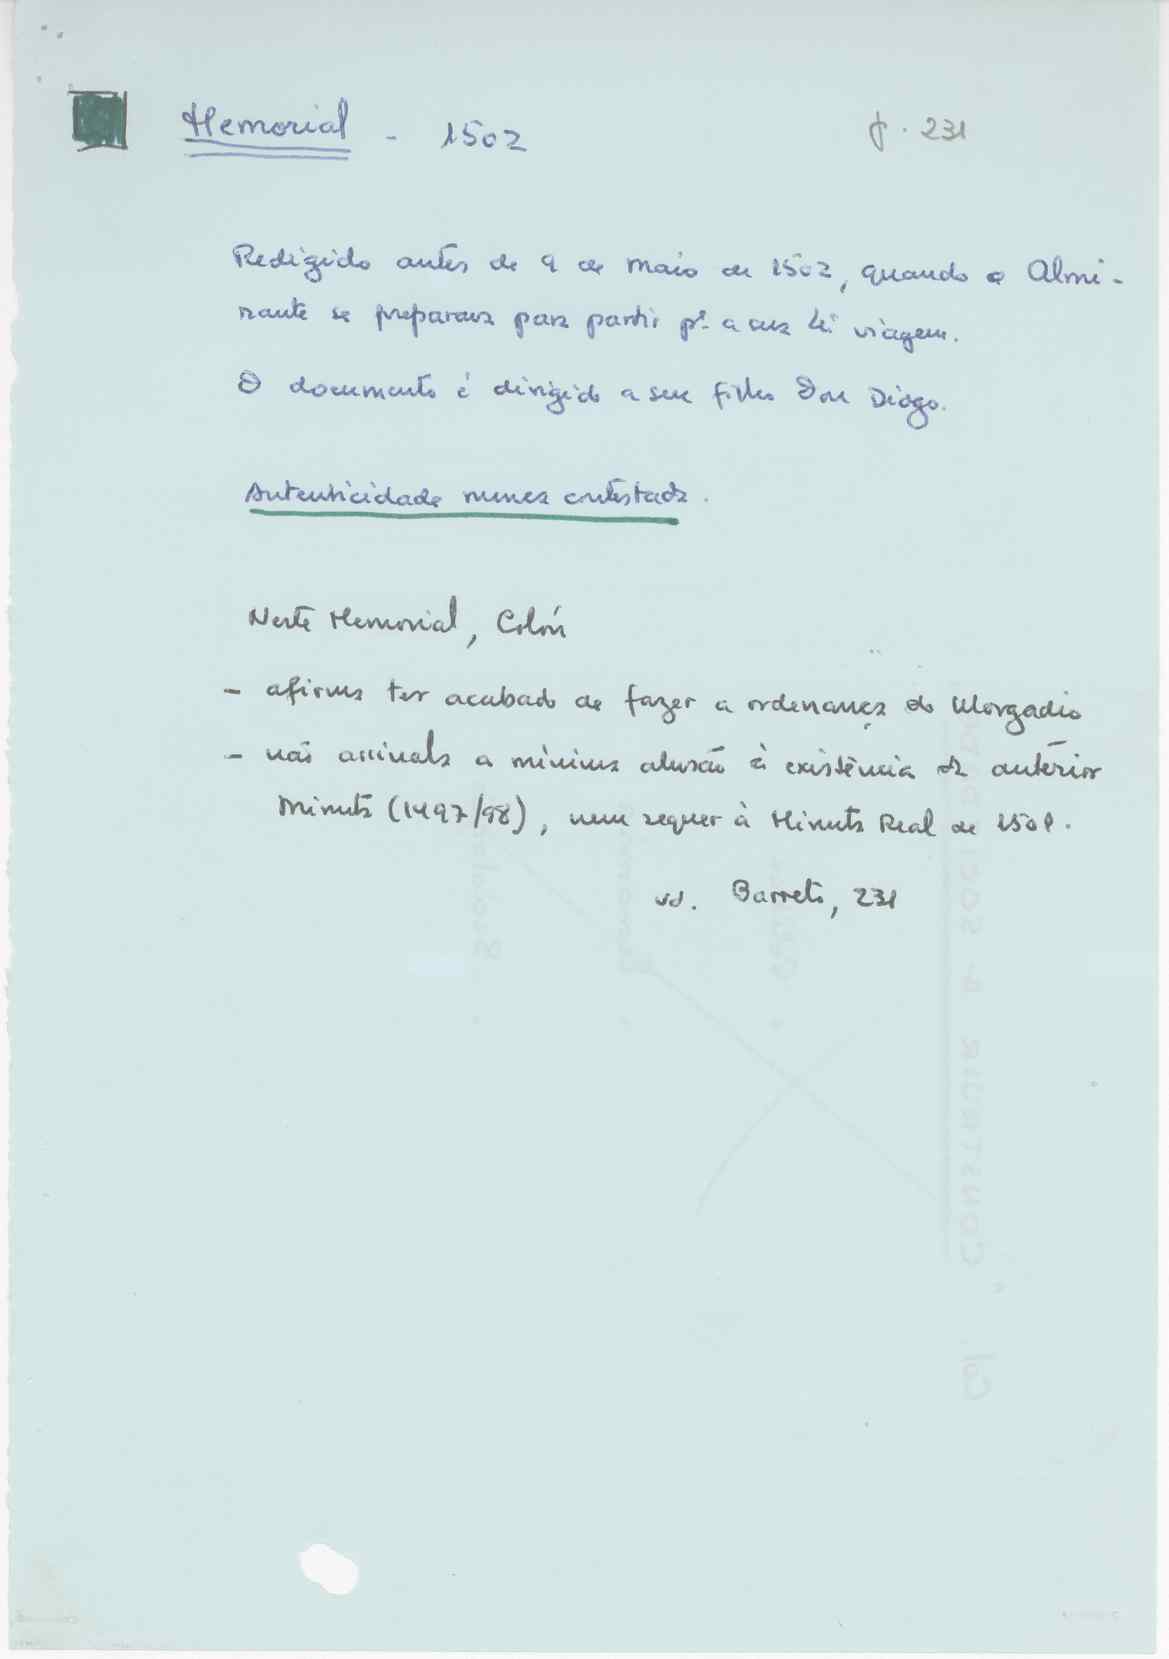 Memorial - 1502 f. 231
Redigido antes de 9 de Maio de 1502, quando o Almi-
rante se preparava para partir pª a sua 4ª viagem.
O documento é dirigido a seu filho Don Diogo.
Autenticidade nunca contestada.
Neste Memorial, Colón
- afirma ter acabado de fazer a ordenança do Morgadio
- não assinala a mínima alusão à existência da anterior
Minuta (1497/98), nem sequer à Minuta Real de 1501.
vd. Barreto, 231